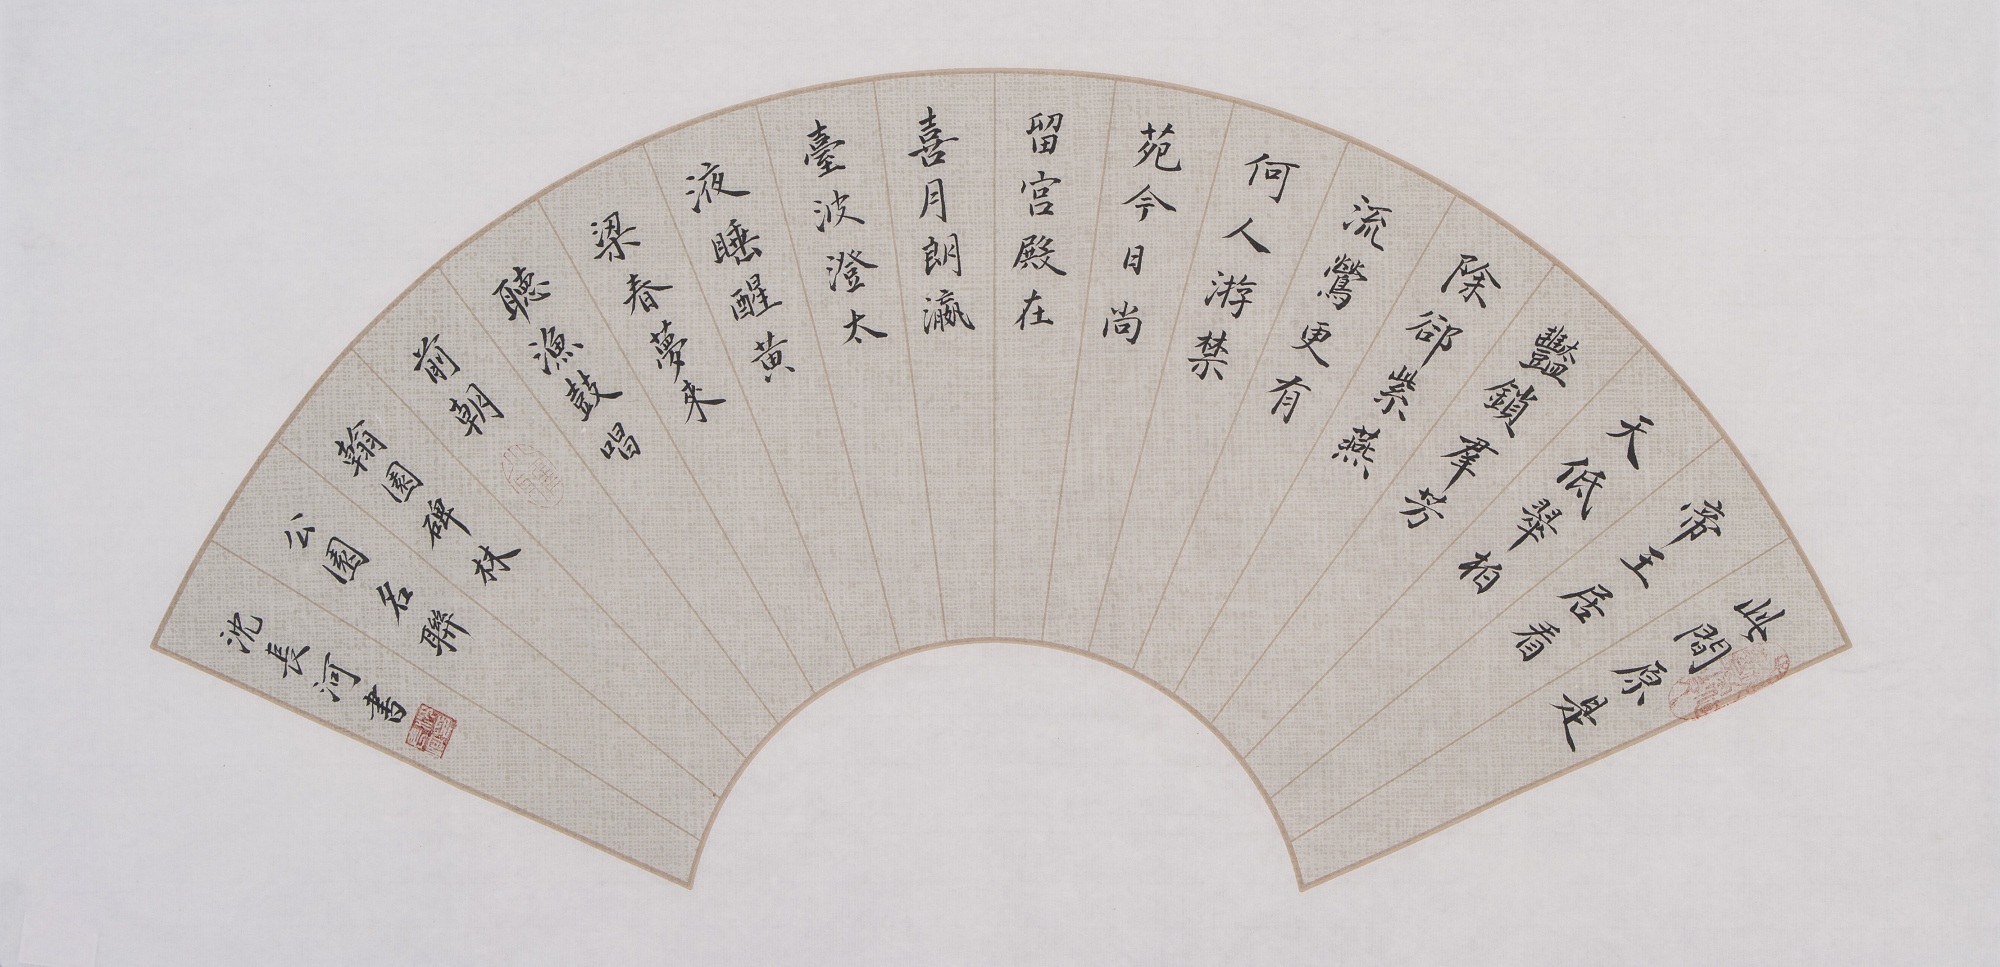 此間原是
帝王居看
天低翠柏
豔鎖羣芳
除郤紫燕
流鶯更有
何人游禁
苑今日尚
留宫殿在
喜月朗瀛
臺波澄太
液睡醒黃
梁春夢來
聽漁鼓唱
前朝
翰園碑林
公園名聯
沈長河書